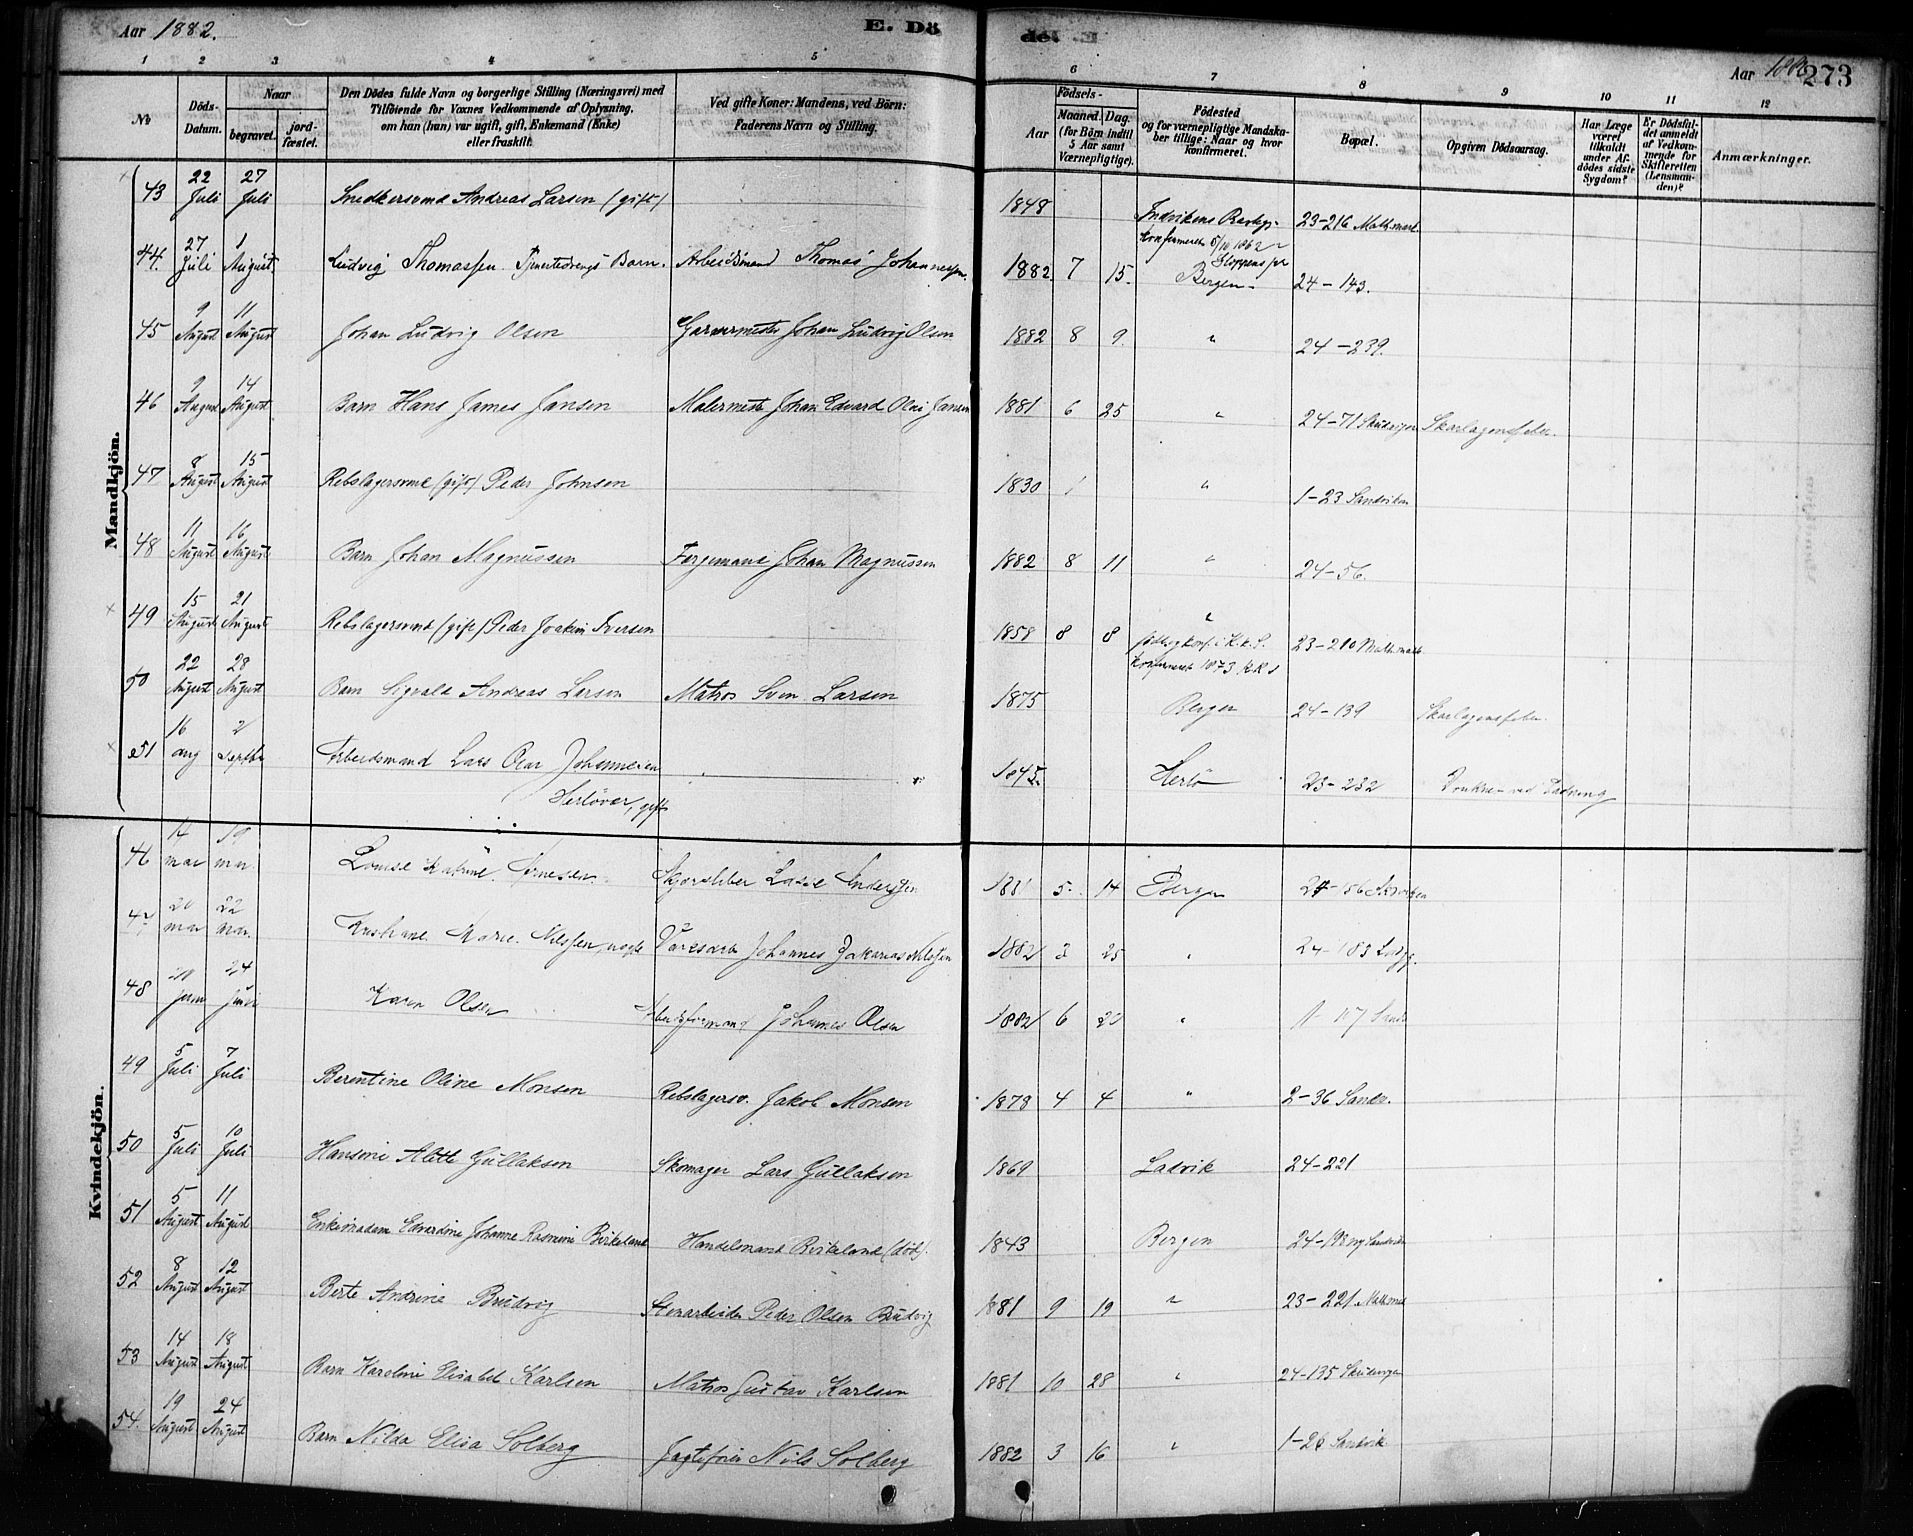 Aar 1882. E. Dö
de. E Aar 1882 273
1 2 3 4 5 6 7 8 9 10 11 12
No
Döds-Datum.
Naar
begravet.
jord-fæstet.
Den Dödes fulde Navn og borgerlige Stilling (Næringsvei) med
Tilföiende for Voxnes Vedkommende af Oplysning,
om han (hun) var ugift, gift, Enkemand (Enke)
eller fraskilt.
Ved gifte Koner: Mandens, ved Börn:
Faderens Navn og Stilling.
Födsels-
Aar
Maaned.
Dag.
(for Börn indtil
5 Aar samt
Værnepligtige).
Födested
og for værnepligtige Mandska-
ber tillige: Naar og hvor
konfirmeret.
Bopæl.
Opgiven Dödsaarsag.
Har Læge
været
tilkaldt
under Af-
dödes sidste
Sygdom?
Er Dödsfal-
det anmeldt
af Vedkom-
mende for
Skifteretten
(Lensman-
den)?
Anmærkninger.
Mandkjön.
43 22 Juli 27 Juli Snedkersvend Andreas Larsen (gift) 1848 Indvikens 23-216
Konfirmeret 5/10 1862
44. 27 Juli 1 August Ludvig Thomassen Barn. Arbeidsmand Thomas Johannessen 1882 7 15. Bergen 24-143.
45 9 August 11 August Johan Ludvig Olsen Garvermester Johan Ludvig Olsen 1882 8 9. " 24-239.
46 9 August 14 August Barn Hans James Jansen Malermester Johan Edvard Olai Jansen 1881 6 25 " 24-71 Skarlagensfeber.
47 8 August 15 August Rebslagersvend (gift) Peder Johnsen 1830 " 1-23 Sandviken
48 11 August 16 August Barn Johan Magnussen Færgemand Johan Magnussen 1882 8 11 " 24-56.
49 15 August 21 August Rebslagersvend (gift) Peder Joakim Iversen 1858 8 8 " 23-210
Konfirmeret 1873
50 22 August 28 August Barn Sigvald Andreas Larsen Matros Sven Larsen 1875 Bergen 24-139 Skarlagensfeber
51 16 aug 2 Septbr Arbeidsmand Lars Olai Johannesen 1845 Herlö 23-232 Drukne ved
Herlövær, gift
Kvindekjön.
46 14 mar 19 mar. Louise Katrine Lasse Andersen 1881 5 14 Bergen
47 20 mar 22 mar. Marie Nilssen, Johannes Zakarias Nilssen 1882 3 25 " 24-183
48 20 24 Karen Olsen Johannes Olsen 1882 6 20 " 107
49 5 Juli 7 Juli Berentine Oline Monsen Rebslagersv. Jakob Monsen 1878 4 4 " 2-36 Sandv.
50 5 Juli 10 Juli Hansine Alette Gullaksen Skomager Lars Gullaksen 1869 Ladvik 24-221
51 5 August 11 August Enkemadam Edvardine Johanne Rasmine Birkeland Handelsmand Birkeland (död). 1843 Bergen 24-
52 8 August 12 August Berte Andrine Brudvig Stenarbeider Peder Olsen Brudvig 1881 9 19 " 23-221
53 14 August 18 August Barn Karoline Elisabet Karlsen Matros Gustav Karlsen 1881 10 28 " 24-135
54. 19 August 24 August Barn Nilda Elisa Solberg Jagtefører Nils Solberg 1882 3 16 " 1-26 Sandvik